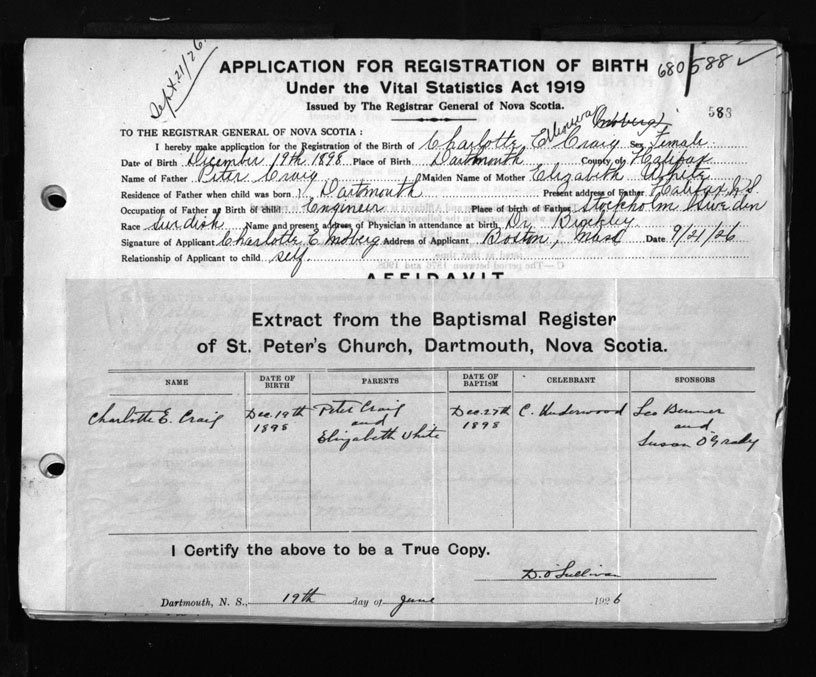 Sept. 21/26.
APPLICATION FOR REGISTRATION OF BIRTH 680 588 ✓
Under the Vital Statistics Act 1919
Issued by The Registrar General of Nova Scotia.
588
TO THE REGISTRAR GENERAL OF NOVA SCOTIA :
I hereby make application for the Registration of the Birth of Charlotte Craig Sex Female
Date of Birth December 19th 1898 Place of Birth Dartmouth County of Halifax
Name of Father Peter Craig Maiden Name of Mother Elizabeth White
Residence of Father when child was born Dartmouth Present address of Father Halifax N.S.
Occupation of Father at Birth of child Engineer Place of birth of Father Stockholm Sweden
Race Name and present address of Physician in attendance at birth Dr.
Signature of Applicant Charlotte E Address of Applicant Boston, Mass Date 9/21/26
Relationship of Applicant to child self.
AFFIDAVIT
Extract from the Baptismal Register
of St. Peter's Church, Dartmouth, Nova Scotia.
NAME DATE OF BIRTH PARENTS DATE OF BAPTISM CELEBRANT SPONSORS
Charlotte E. Craig Dec. 19th 1898 Peter Craig and Elizabeth White Dec. 27th 1898 C. Underwood Leo and Susan O'Grady
I Certify the above to be a True Copy.
D. O'Sullivan
Dartmouth, N. S., 19th day of June 1926